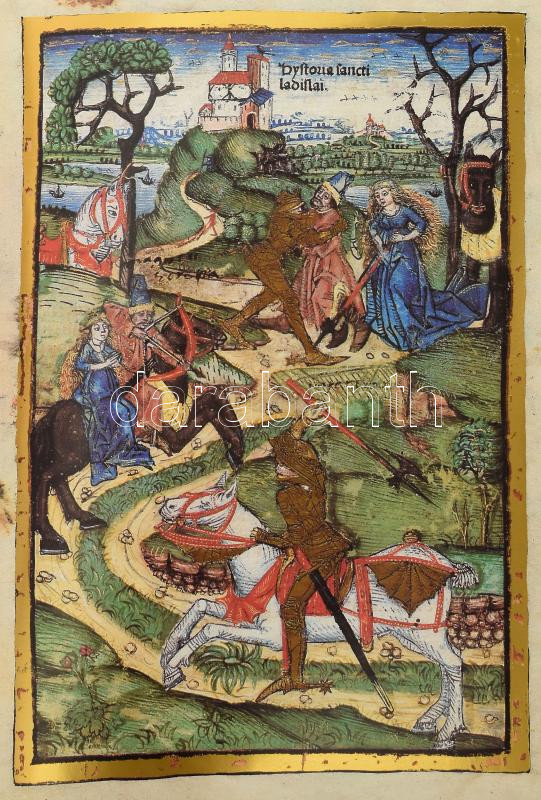 Hystoria sancti
ladislai.
darabanth